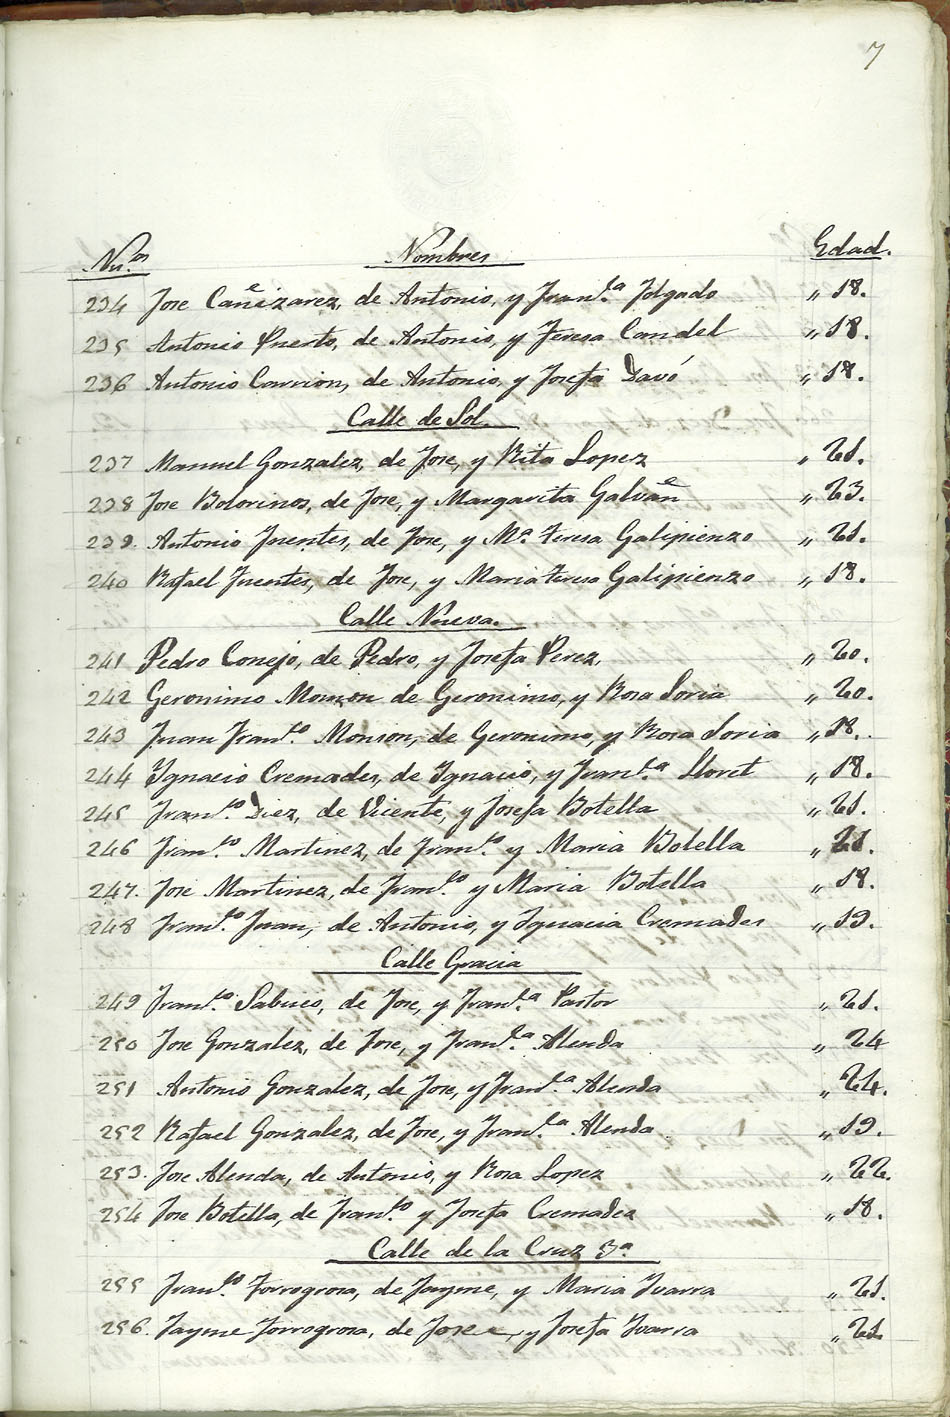 7
Nu.os Nombres Edad.
234 Jose Cañizarez, de Antonio, y Fran.ca Folgado " 18.
235 Antonio Puerto, de Antonio, y Teresa Candel " 18.
236 Antonio Carrion, de Antonio, y Josefa Davó " 18.
Calle de Sol.
237 Manuel Gonzalez, de Jose, y Rita Lopez " 21.
238 Jose Bolorinos, de Jose, y Margarita Galvañ " 23.
239. Antonio Fuentes, de Jose, y M.a Teresa Galipienzo " 21.
240 Rafael Fuentes, de Jose, y Maria Teresa Galipienzo " 18.
Calle Nueva.
241 Pedro Conejo, de Pedro, y Josefa Perez, " 20.
242 Geronimo Monzon de Geronimo, y Rosa Soria " 20.
243 Juan Fran.co Monson, de Geronimo, y Rosa Soria " 18.
244 Ygnacio Cremades, de Ygnacio, y Fran.ca Lloret " 18.
245 Fran.co Diez, de Vicente, y Josefa Botella " 21.
246 Fran.co Martinez, de Fran.co y Maria Botella " 21.
247. Jose Martinez, de Fran.co y Maria Botella " 18.
248 Fran.co Juan, de Antonio, y Ygnacia Cremades " 19.
Calle Gracia
249 Fran.co Sabuco, de Jose, y Fran.ca Pastor " 21.
250 Jose Gonzalez, de Jose, y Fran.ca Alenda " 24
251 Antonio Gonzalez, de Jose, y Fran.ca Alenda " 24.
252 Rafael Gonzalez, de Jose, y Fran.ca Alenda " 19.
253. Jose Alenda, de Antonio, y Rosa Lopez " 22.
254 Jose Botella, de Fran.co y Josefa Cremades " 18.
Calle de la Cruz 3a
255 Fran.co Torregrosa, de Jayme, y Maria Ivarra " 21.
256. Jayme Torregrosa, de Jose, y Josefa Ivarra " 21